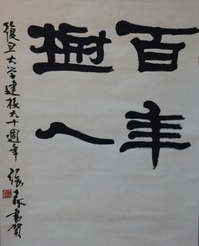 百年
树人
復旦大学建校九十週年
张森書賀